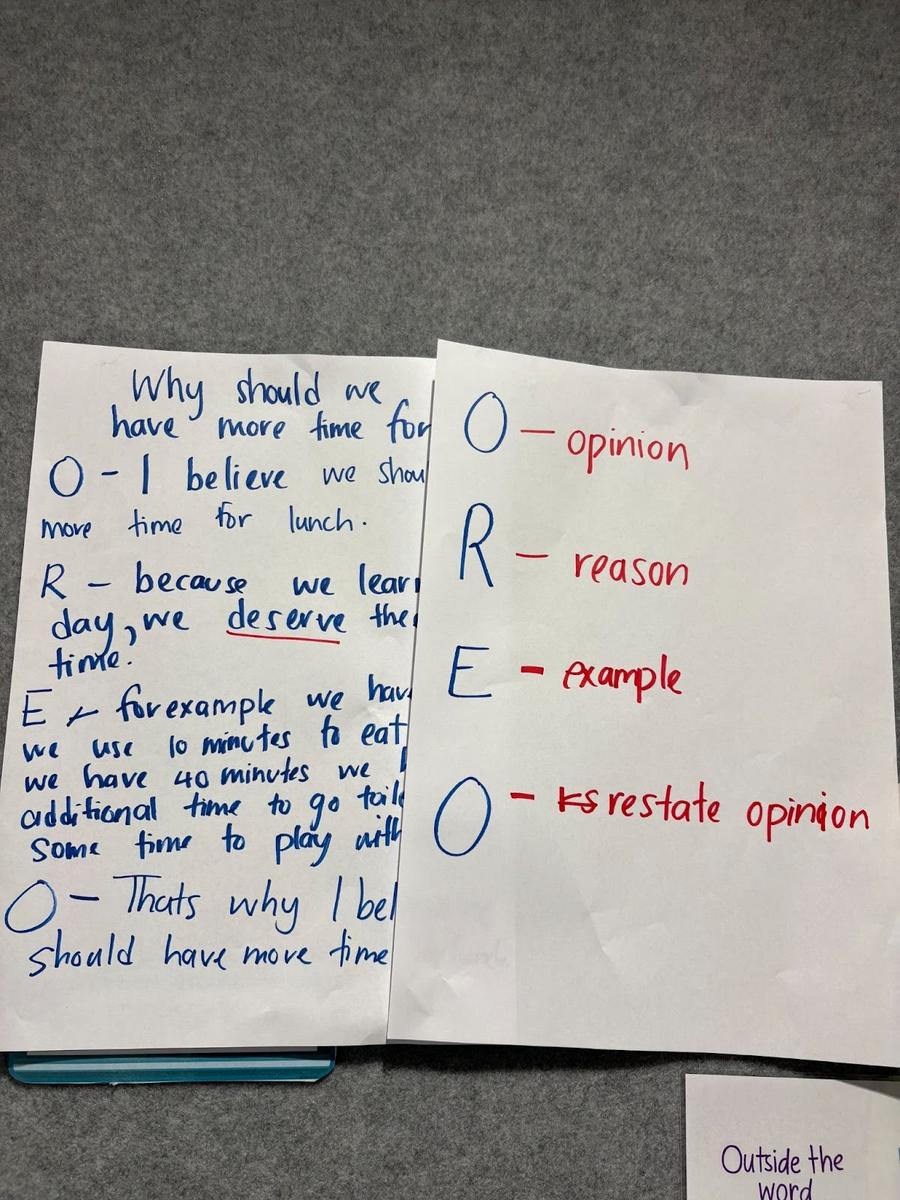 Why should we
have more time for
O - I believe we shou
more time for lunch.
R - because we lear
day, we deserve the
time.
E - for example we hav
we use 10 minutes to eat
we have 40 minutes we
additional time to go toile
some time to play with
O - Thats why I bel
should have more time
O - opinion
R - reason
E - example
O - restate opinion
Outside the
word